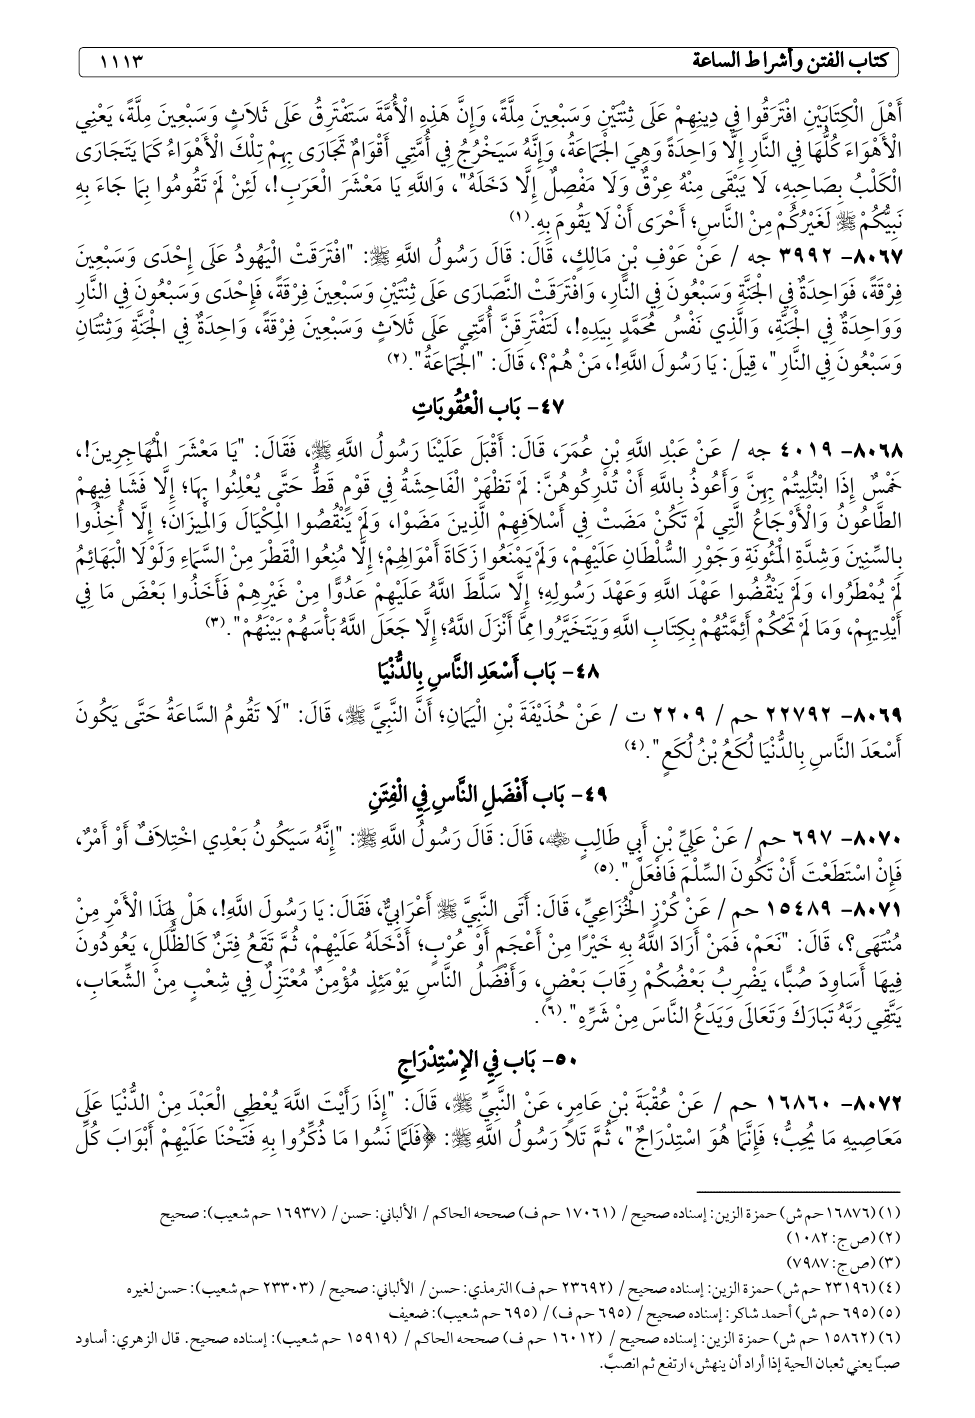 كتاب الفتن وأشراط الساعة ١١١٣
أَهْلَ الْكِتَابَيْنِ افْتَرَقُوا فِي دِينِهِمْ عَلَى ثِنْتَيْنِ وَسَبْعِينَ مِلَّةً، وَإِنَّ هَذِهِ الْأُمَّةَ سَتَفْتَرِقُ عَلَى ثَلَاثٍ وَسَبْعِينَ مِلَّةً، يَعْنِي
الْأَهْوَاءَ كُلُّهَا فِي النَّارِ إِلَّا وَاحِدَةً وَهِيَ الْجَمَاعَةُ، وَإِنَّهُ سَيَخْرُجُ فِي أُمَّتِي أَقْوَامٌ تَجَارَى بِهِمْ تِلْكَ الْأَهْوَاءُ كَمَا يَتَجَارَى
الْكَلْبُ بِصَاحِبِهِ، لَا يَبْقَى مِنْهُ عِرْقٌ وَلَا مَفْصِلٌ إِلَّا دَخَلَهُ"، وَاللَّهِ يَا مَعْشَرَ الْعَرَبِ!، لَئِنْ لَمْ تَقُومُوا بِمَا جَاءَ بِهِ
نَبِيُّكُمْ ﷺ لَغَيْرُكُمْ مِنْ النَّاسِ؛ أَحْرَى أَنْ لَا يَقُومَ بِهِ.(١)
٨٠٦٧- ٣٩٩٢ جه / عَنْ عَوْفِ بْنِ مَالِكٍ، قَالَ: قَالَ رَسُولُ اللَّهِ ﷺ: "افْتَرَقَتْ الْيَهُودُ عَلَى إِحْدَى وَسَبْعِينَ
فِرْقَةً، فَوَاحِدَةٌ فِي الْجَنَّةِ وَسَبْعُونَ فِي النَّارِ، وَافْتَرَقَتْ النَّصَارَى عَلَى ثِنْتَيْنِ وَسَبْعِينَ فِرْقَةً، فَإِحْدَى وَسَبْعُونَ فِي النَّارِ
وَوَاحِدَةٌ فِي الْجَنَّةِ، وَالَّذِي نَفْسُ مُحَمَّدٍ بِيَدِهِ!، لَتَفْتَرِقَنَّ أُمَّتِي عَلَى ثَلَاثٍ وَسَبْعِينَ فِرْقَةً، وَاحِدَةٌ فِي الْجَنَّةِ وَثِنْتَانِ
وَسَبْعُونَ فِي النَّارِ"، قِيلَ: يَا رَسُولَ اللَّهِ!، مَنْ هُمْ؟، قَالَ: "الْجَمَاعَةُ".(٢)
٤٧- بَاب الْعُقُوبَاتِ
٨٠٦٨- ٤٠١٩ جه / عَنْ عَبْدِ اللَّهِ بْنِ عُمَرَ، قَالَ: أَقْبَلَ عَلَيْنَا رَسُولُ اللَّهِ ﷺ، فَقَالَ: "يَا مَعْشَرَ الْمُهَاجِرِينَ!،
خَمْسٌ إِذَا ابْتُلِيتُمْ بِهِنَّ وَأَعُوذُ بِاللَّهِ أَنْ تُدْرِكُوهُنَّ: لَمْ تَظْهَرْ الْفَاحِشَةُ فِي قَوْمٍ قَطُّ حَتَّى يُعْلِنُوا بِهَا؛ إِلَّا فَشَا فِيهِمْ
الطَّاعُونُ وَالْأَوْجَاعُ الَّتِي لَمْ تَكُنْ مَضَتْ فِي أَسْلَافِهِمْ الَّذِينَ مَضَوْا، وَلَمْ يَنْقُصُوا الْمِكْيَالَ وَالْمِيزَانَ؛ إِلَّا أُخِذُوا
بِالسِّنِينَ وَشِدَّةِ الْمَئُونَةِ وَجَوْرِ السُّلْطَانِ عَلَيْهِمْ، وَلَمْ يَمْنَعُوا زَكَاةَ أَمْوَالِهِمْ؛ إِلَّا مُنِعُوا الْقَطْرَ مِنْ السَّمَاءِ وَلَوْلَا الْبَهَائِمُ
لَمْ يُمْطَرُوا، وَلَمْ يَنْقُضُوا عَهْدَ اللَّهِ وَعَهْدَ رَسُولِهِ؛ إِلَّا سَلَّطَ اللَّهُ عَلَيْهِمْ عَدُوًّا مِنْ غَيْرِهِمْ فَأَخَذُوا بَعْضَ مَا فِي
أَيْدِيهِمْ، وَمَا لَمْ تَحْكُمْ أَئِمَّتُهُمْ بِكِتَابِ اللَّهِ وَيَتَخَيَّرُوا مِمَّا أَنْزَلَ اللَّهُ؛ إِلَّا جَعَلَ اللَّهُ بَأْسَهُمْ بَيْنَهُمْ".(٣)
٤٨- بَاب أَسْعَدِ النَّاسِ بِالدُّنْيَا
٨٠٦٩- ٢٢٧٩٢ حم / ٢٢٠٩ ت / عَنْ حُذَيْفَةَ بْنِ الْيَمَانِ؛ أَنَّ النَّبِيَّ ﷺ، قَالَ: "لَا تَقُومُ السَّاعَةُ حَتَّى يَكُونَ
أَسْعَدَ النَّاسِ بِالدُّنْيَا لُكَعُ بْنُ لُكَعٍ".(٤)
٤٩- بَاب أَفْضَلِ النَّاسِ فِي الْفِتَنِ
٨٠٧٠- ٦٩٧ حم / عَنْ عَلِيِّ بْنِ أَبِي طَالِبٍ ﵁، قَالَ: قَالَ رَسُولُ اللَّهِ ﷺ: "إِنَّهُ سَيَكُونُ بَعْدِي اخْتِلَافٌ أَوْ أَمْرٌ،
فَإِنْ اسْتَطَعْتَ أَنْ تَكُونَ السِّلْمَ فَافْعَلْ".(٥)
٨٠٧١- ١٥٤٨٩ حم / عَنْ كُرْزٍ الْخُزَاعِيِّ، قَالَ: أَتَى النَّبِيَّ ﷺ أَعْرَابِيٌّ، فَقَالَ: يَا رَسُولَ اللَّهِ!، هَلْ لِهَذَا الْأَمْرِ مِنْ
مُنْتَهَى؟، قَالَ: "نَعَمْ، فَمَنْ أَرَادَ اللَّهُ بِهِ خَيْرًا مِنْ أَعْجَمَ أَوْ عُرْبٍ؛ أَدْخَلَهُ عَلَيْهِمْ، ثُمَّ تَقَعُ فِتَنٌ كَالظُّلَلِ، يَعُودُونَ
فِيهَا أَسَاوِدَ صُبًّا، يَضْرِبُ بَعْضُكُمْ رِقَابَ بَعْضٍ، وَأَفْضَلُ النَّاسِ يَوْمَئِذٍ مُؤْمِنٌ مُعْتَزِلٌ فِي شِعْبٍ مِنْ الشِّعَابِ،
يَتَّقِي رَبَّهُ تَبَارَكَ وَتَعَالَى وَيَدَعُ النَّاسَ مِنْ شَرِّهِ".(٦).
٥٠- بَاب فِي الِاسْتِدْرَاجِ
٨٠٧٢- ١٦٨٦٠ حم / عَنْ عُقْبَةَ بْنِ عَامِرٍ، عَنْ النَّبِيِّ ﷺ، قَالَ: "إِذَا رَأَيْتَ اللَّهَ يُعْطِي الْعَبْدَ مِنْ الدُّنْيَا عَلَى
مَعَاصِيهِ مَا يُحِبُّ؛ فَإِنَّمَا هُوَ اسْتِدْرَاجٌ"، ثُمَّ تَلَا رَسُولُ اللَّهِ ﷺ: ﴿فَلَمَّا نَسُوا مَا ذُكِّرُوا بِهِ فَتَحْنَا عَلَيْهِمْ أَبْوَابَ كُلِّ
(١) (١٦٨٧٦ حم ش) حمزة الزين: إسناده صحيح / (١٧٠٦١ حم ف) صححه الحاكم / الألباني: حسن / (١٦٩٣٧ حم شعيب): صحيح
(٢) (ص ج: ١٠٨٢)
(٣) (ص ج: ٧٩٨٧)
(٤) (٢٣١٩٦ حم ش) حمزة الزين: إسناده صحيح / (٢٣٦٩٢ حم ف) الترمذي: حسن / الألباني: صحيح / (٢٣٣٠٣ حم شعيب): حسن لغيره
(٥) (٦٩٥ حم ش) أحمد شاكر: إسناده صحيح / (٦٩٥ حم ف) / (٦٩٥ حم شعيب): ضعيف
(٦) (١٥٨٦٢ حم ش) حمزة الزين: إسناده صحيح / (١٦٠١٢ حم ف) صححه الحاكم / (١٥٩١٩ حم شعيب): إسناده صحيح. قال الزهري: أساود
صبًا يعني ثعبان الحية إذا أراد أن ينهش، ارتفع ثم انصبَّ.